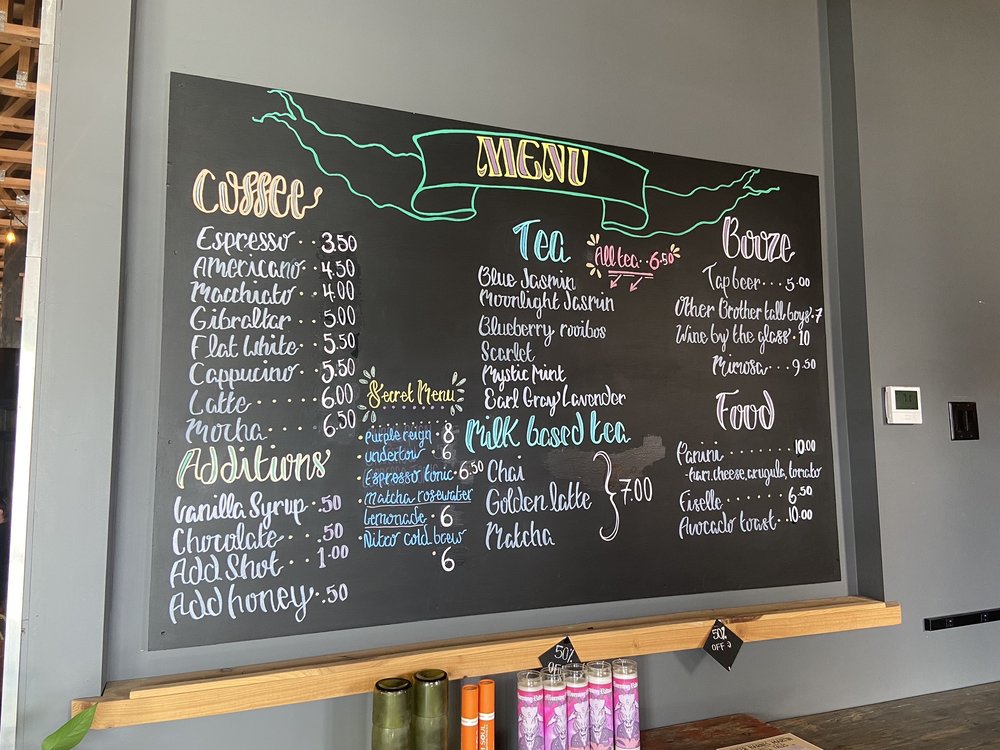 MENU
Coffee
Espresso . . 3.50
Americano . . 4.50
Macchiato . . 4.00
Gibraltar . . . 5.00
Flat White . . 5.50
Cappucino . . . 5.50
Latte . . . . . 6.00
Mocha . . . . 6.50
Additions
Vanilla Syrup .50
Chocolate . . .50
Add Shot . . 1.00
Add honey . .50
Secret Menu
Purple reign . 8
undertow . . 6
Espresso tonic . 6.50
Matcha rosewater
Lemonade . 6
Nitro cold brew
6
Tea
All tea . . 6.50
Blue Jasmin
Moonlight Jasmin
Blueberry rooibos
Scarlet
Mystic Mint
Earl Gray Lavender
Milk based tea
Chai
Golden latte
Matcha
7.00
Booze
Tap beer . . . 5.00
Other Brother tall boys . 7
Wine by the glass . 10
Mimosa . . . 9.50
Food
Panini . . . . . . . 10.00
-ham, cheese, arugula, tomato
Fiselle . . . . . . 6.50
Avocado toast . . 10.00
50%
OFF
50%
OFF
SOUL